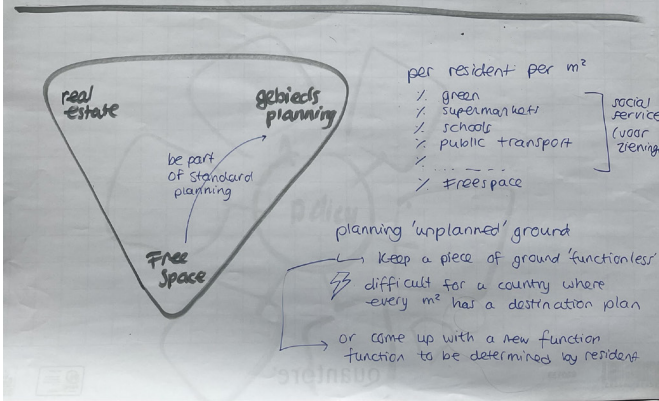 real
estate
gebieds
planning
be part
of standard
planning
Free
Space
per resident per m²
% green
% supermarkets
% schools
% public transport
% ..........
% Freespace
social
service
(voor
ziening
planning 'unplanned' ground
Keep a piece of ground 'functionless'
difficult for a country where
every m² has a destination plan
or come up with a new function
function to be determined by resident